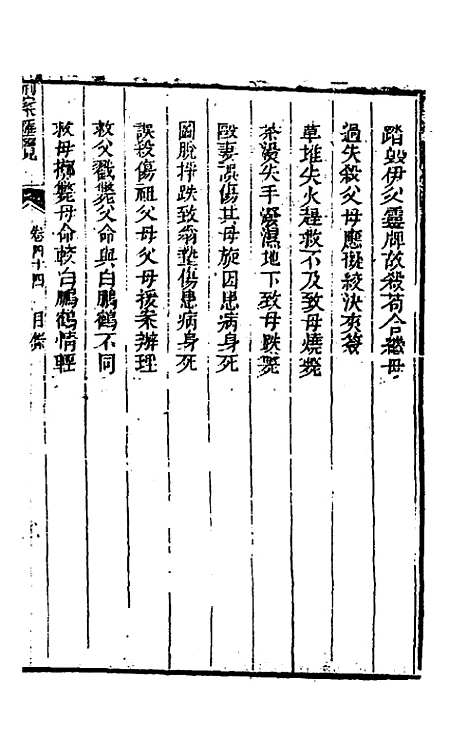 踏毀伊父靈牌故殺苟合繼母
過失殺父母應擬絞決夾簽
草堆失火趕救不及致母燒斃
茶燙失手潑濕地下致母跌斃
毆妻誤傷其母旋因患病身死
圖脫掙跌致翁墊傷患病身死
誤殺傷祖父母父母援案辦理
救父戳斃父命與白鵬鶴不同
救母擲斃母命較白鵬鶴情輕
刑案匯覽 卷四十四 目錄